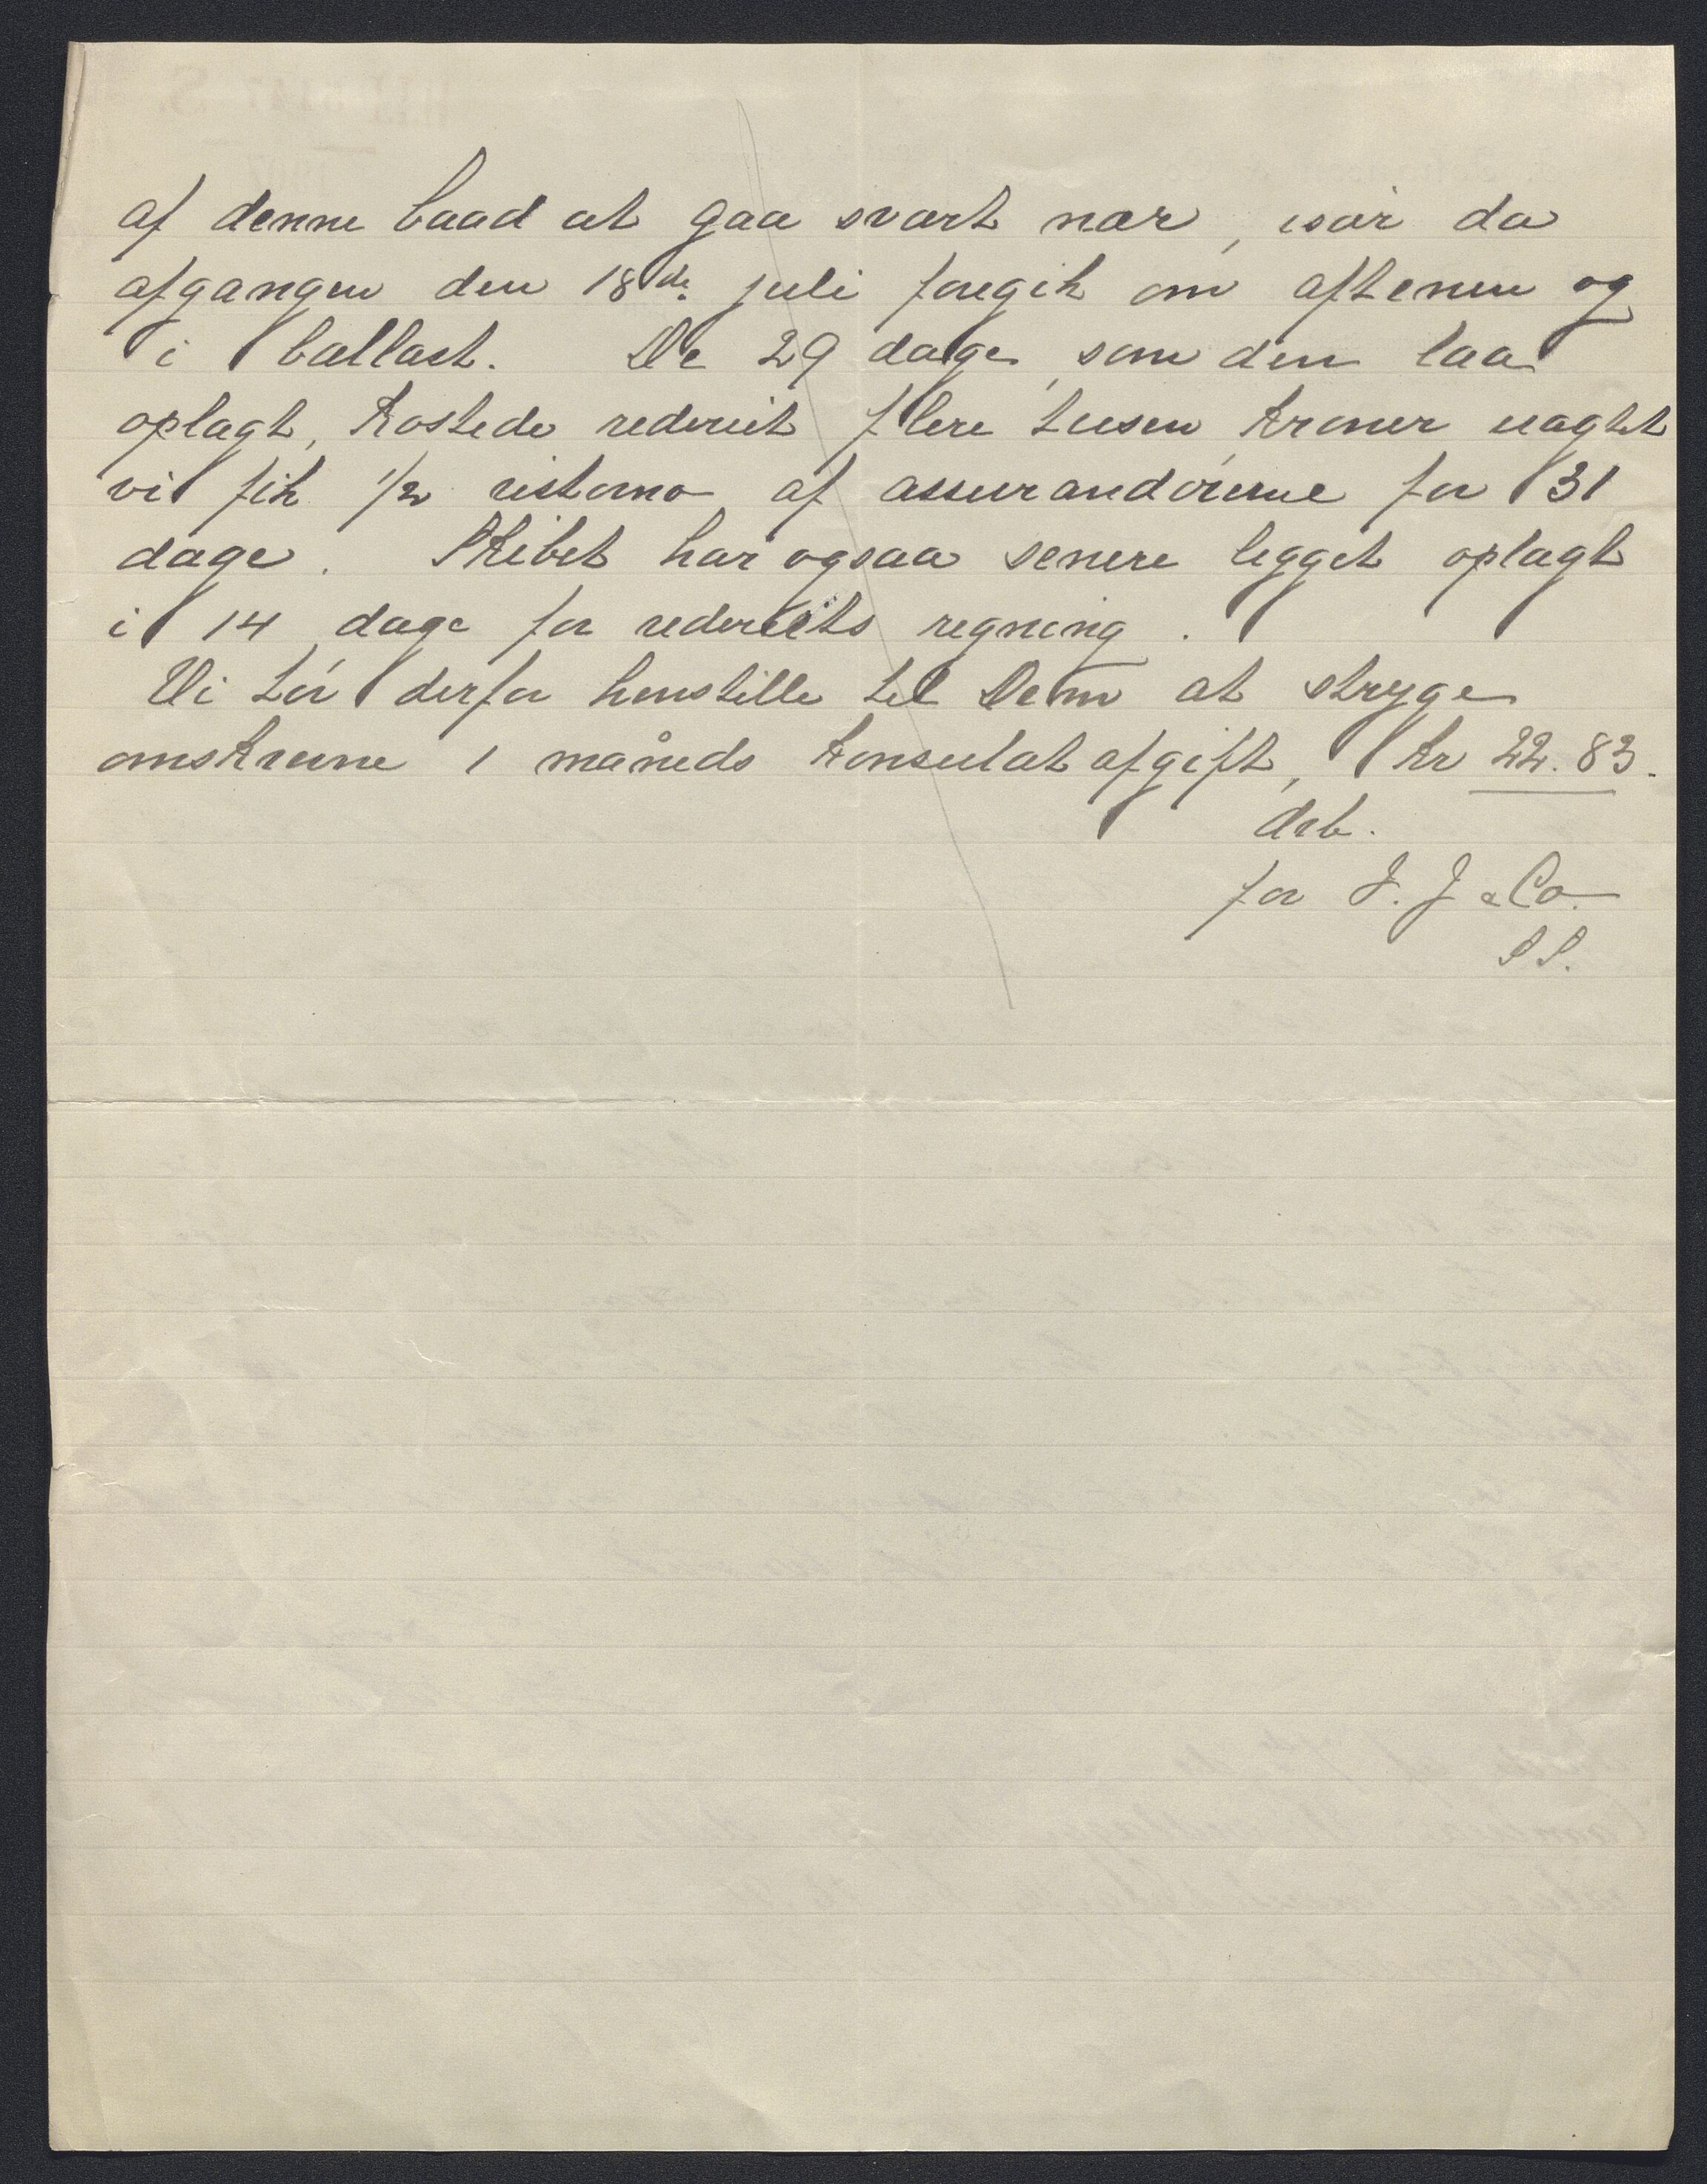 af denne baad at gaa svært nær, især da
afgangen den 18de juli foregik om aftenen og
i ballast. De 29 dage, som den laa
oplagt, kostede rederiet flere tusen kroner uagtet
vi fik 1/2 ristorno af assurandørerne for 31
dage. Skibet har ogsaa senere ligget oplagt
i 14 dage for rederiets regning.
Vi tør derfor henstille til Dem at stryge
omskrevne 1 måneds konsulatafgift, Kr 22.83.
drb.
for J. J & Co.